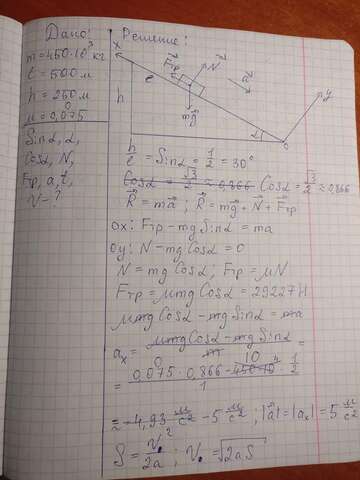 Дано:
m=450·10³ кг
l=500 м
h=250 м
μ=0,075
Sinα, α,
Cosα, N,
Fтр, a, t,
v-?
Решение:
x
Fтр
N
a
l
mg
h
α
O
y
h/l = Sinα = 1/2 = 30°
Cosα = √3/2 ≈ 0,866 Cosα = √3/2 ≈ 0,866
R = ma ; R = mg + N + Fтр
ox: Fтр - mg Sinα = ma
oy: N - mg Cosα = 0
N = mg Cosα ; Fтр = μN
Fтр = μmg Cosα = 29227 Н
μmg Cosα - mg Sinα = ma
aₓ = (μmg Cosα - mg Sinα)/m =
= (0,075 · 0,866 - 10 · 1/2)/1
≈ -4,93 м/с² - 5 м/с² ; |a| = |aₓ| = 5 м/с²
S = v²/2a ; v = √2aS